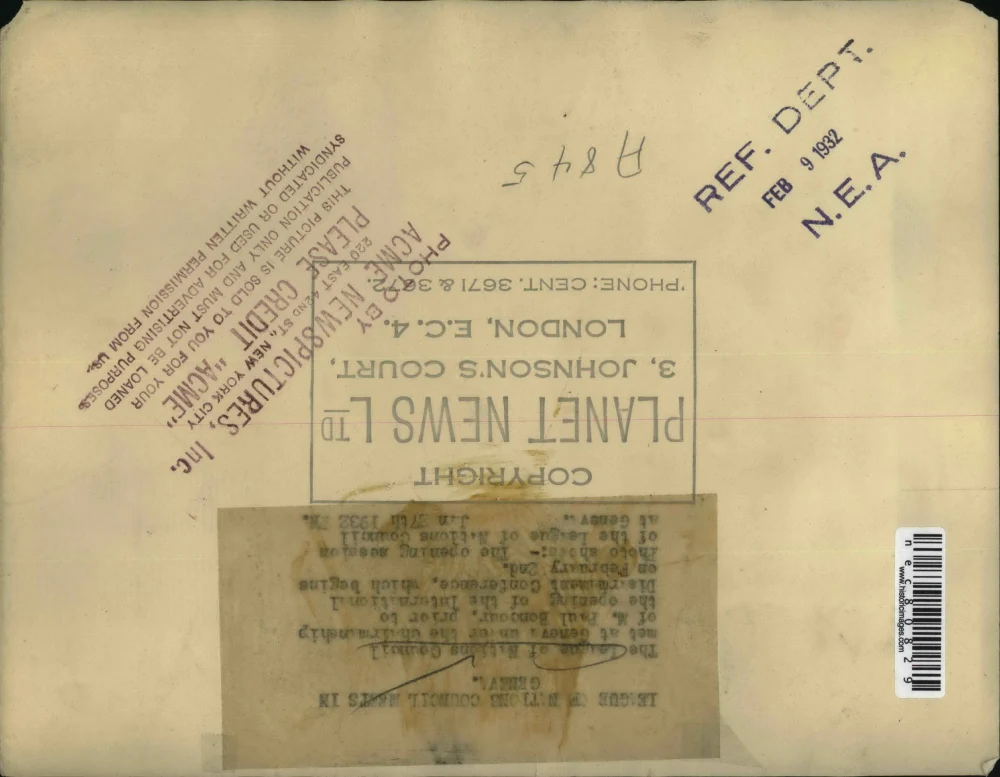 REF. DEPT.
FEB 9 1932
N. E. A.
A845
PHOTO BY
ACME NEWSPICTURES, Inc.
220 EAST 42ND ST., NEW YORK CITY
PLEASE CREDIT "ACME"
THIS PICTURE IS SOLD TO YOU FOR YOUR
PUBLICATION ONLY AND MUST NOT BE LOANED
SYNDICATED OR USED FOR ADVERTISING PURPOSES
WITHOUT WRITTEN PERMISSION FROM US.
COPYRIGHT
PLANET NEWS LTD
3, JOHNSON'S COURT,
LONDON, E.C. 4.
'PHONE: CENT. 3671 & 3672.
LEAGUE OF NATIONS COUNCIL MEETS IN
GENEVA.
The League of Nations Council
met at Geneva under the chairmanship
of M. Paul Boncour, prior to
the opening of the International
Disarmament Conference, which begins
on February 2nd.
Photo shows:- The opening session
of the League of Nations Council
at Geneva. Jan 27th 1932
neC80829
www.historicimages.com